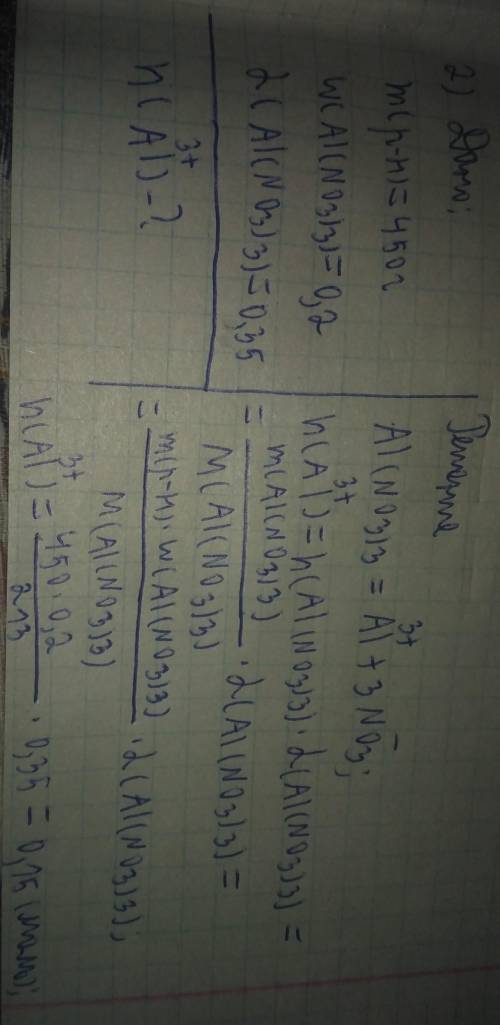 2) Дано:
m(р-н) = 450 г
w(Al(NO3)3) = 0,2
α(Al(NO3)3) = 0,35
n(Al³⁺) - ?
Решение
Al(NO3)3 = Al³⁺ + 3NO3⁻;
n(Al³⁺) = n(Al(NO3)3) · α(Al(NO3)3) =
= m(Al(NO3)3) / M(Al(NO3)3) · α(Al(NO3)3) =
= m(р-н) · w(Al(NO3)3) / M(Al(NO3)3) · α(Al(NO3)3);
n(Al³⁺) = 450 · 0,2 / 213 · 0,35 = 0,15 (моль);